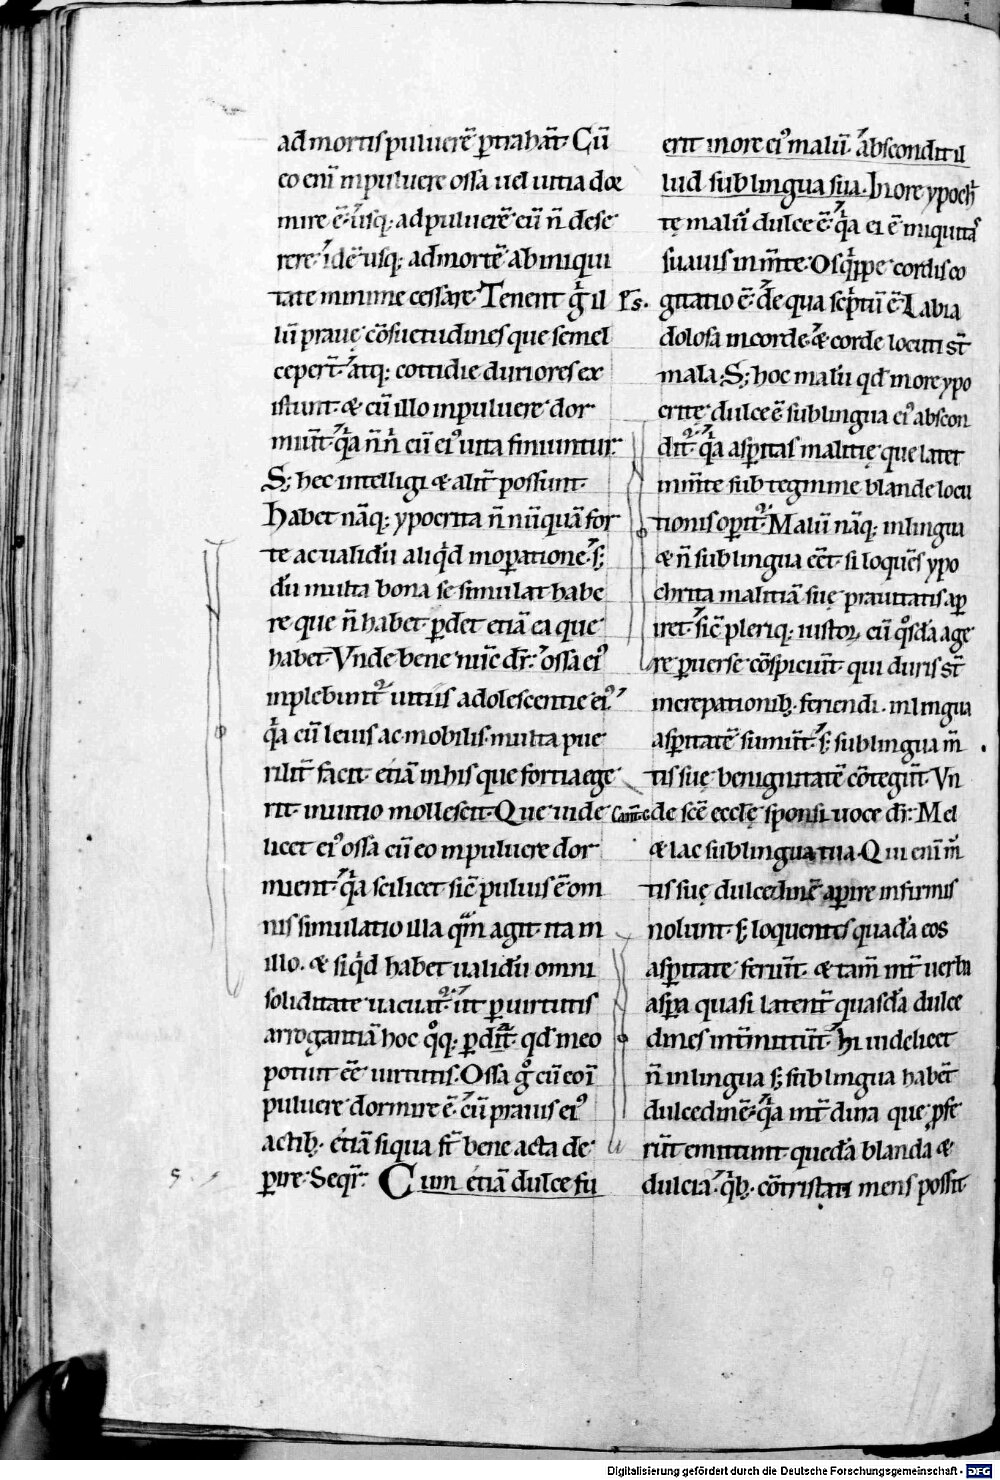 ad mortis puluerē ꝑtrahāt. Cū
eo enī in puluere ossa uel uitia dor
mire ē. usq; ad puluerē eū ñ dese
rere. idē usq; ad mortē ab iniqui
tate minime cessare. Tenent gͥ il
lū prauę cōsuetudines que semel
ceperr̄t. atq; cottidie duriores ex
istunt. & cū illo in puluere dor
miūt. qͥa ñ nͥ cū eiꝰ uita finiuntur.
S; hec intelligi & alit̄ possunt.
Habet nāq; ypocrita ñ nūquā for
te ac ualidū aliqͥd in oꝑatione. s;
dū multa bona se simulat habe
re que ñ habet. ꝑdet etiā ea que
habet. Vnde bene nūc dr̄. ossa eiꝰ
inplebunt᷑ uitiis adolescentie eiꝰ.
qͥa cū leuis ac mobilis multa pue
rilit̄ facit. etiā in his que fortia ege
rit. in uitio mollescit. Que uide
licet eiꝰ ossa cū eo in puluere dor
mient. qͥa scilicet sic̄ puluis ē om
nis simulatio illa qm̄ agit. ita in
illo. & siqͥd habet ualidū omni
soliditate uacuat᷑. ut ꝑ uirtutis
arrogantiā hoc qͦq; ꝑdat. qd̄ in eo
potuit eē uirtutis. Ossa gͦ cū eo ī
puluere dormire ē. cū prauis eiꝰ
actibꝫ. etiā siqua st̄ bene acta de
ꝑire. Seqr̄. Cum etiā dulce fu
erit in ore eiꝰ malū. abscondit il
lud sub lingua sua. In ore ypoch̄
tę malū dulce ē. qͥa ei ē iniquitas
suauis in m̄te. Os qͥppe cordis co
Ps. gitatio ē. de qua scͥptū ē. Labia
dolosa in corde. & corde locuti st̄
mala. S; hoc malū qd̄ in ore ypo
crite dulce ē sub lingua eiꝰ abscon
dit᷑. qͥa asꝑitas malitię que latet
in m̄te sub tegmine blande locu
tionis oꝑit᷑. Malū nāq; in lingua
& ñ sub lingua eēt. si loquēs ypo
chrita malitiā suę prauitatis aꝑ
iret. sic̄ pleriq; iustoꝝ cū qͦsdā age
re ꝑuerse cōspiciūt qui duris st̄
increpationibꝫ feriendi. in lingua
asꝑitatē sumūt. s; sub lingua m̄
tis suę benignitatē cōtegūt. Vn
Cant̄. de scē ecclę sponsi uoce dr̄. Mel
& lac sub lingua tua. Qui enī m̄
tis suę dulcedinē aꝑire infirmis
nolunt. s; loquentes quadā eos
asꝑitate feriūt. & tam̄ int̄ uerba
asꝑa quasi latent̄ quasdā dulce
dines int̄mittūt. hi uidelicet
ñ in lingua s; sub lingua habēt
dulcedinē. qͥa int̄ dura que ꝓfe
rūt emittunt quedā blanda &
dulcia. qͥbꝫ cōtristati mens possit
Digitalisierung gefördert durch die Deutsche Forschungsgemeinschaft - DFG